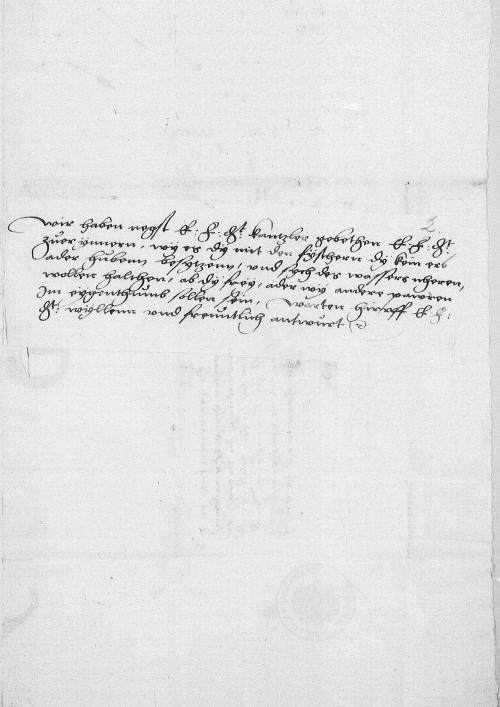 Wir haben negst E: F: Gt: Kantzler gebethen E: F: Gt
zuerynnern, wy es dy mit den fyschern dy kein erb
ader hubenn besytzenn, und sych des wassers nheren,
wollen halthen, ab dy frey, ader wy andere pawren
Im eygenthumb sollen sein, warten hirauff E: F:
Gt: wyllenn und freuntlich antwurt
2.